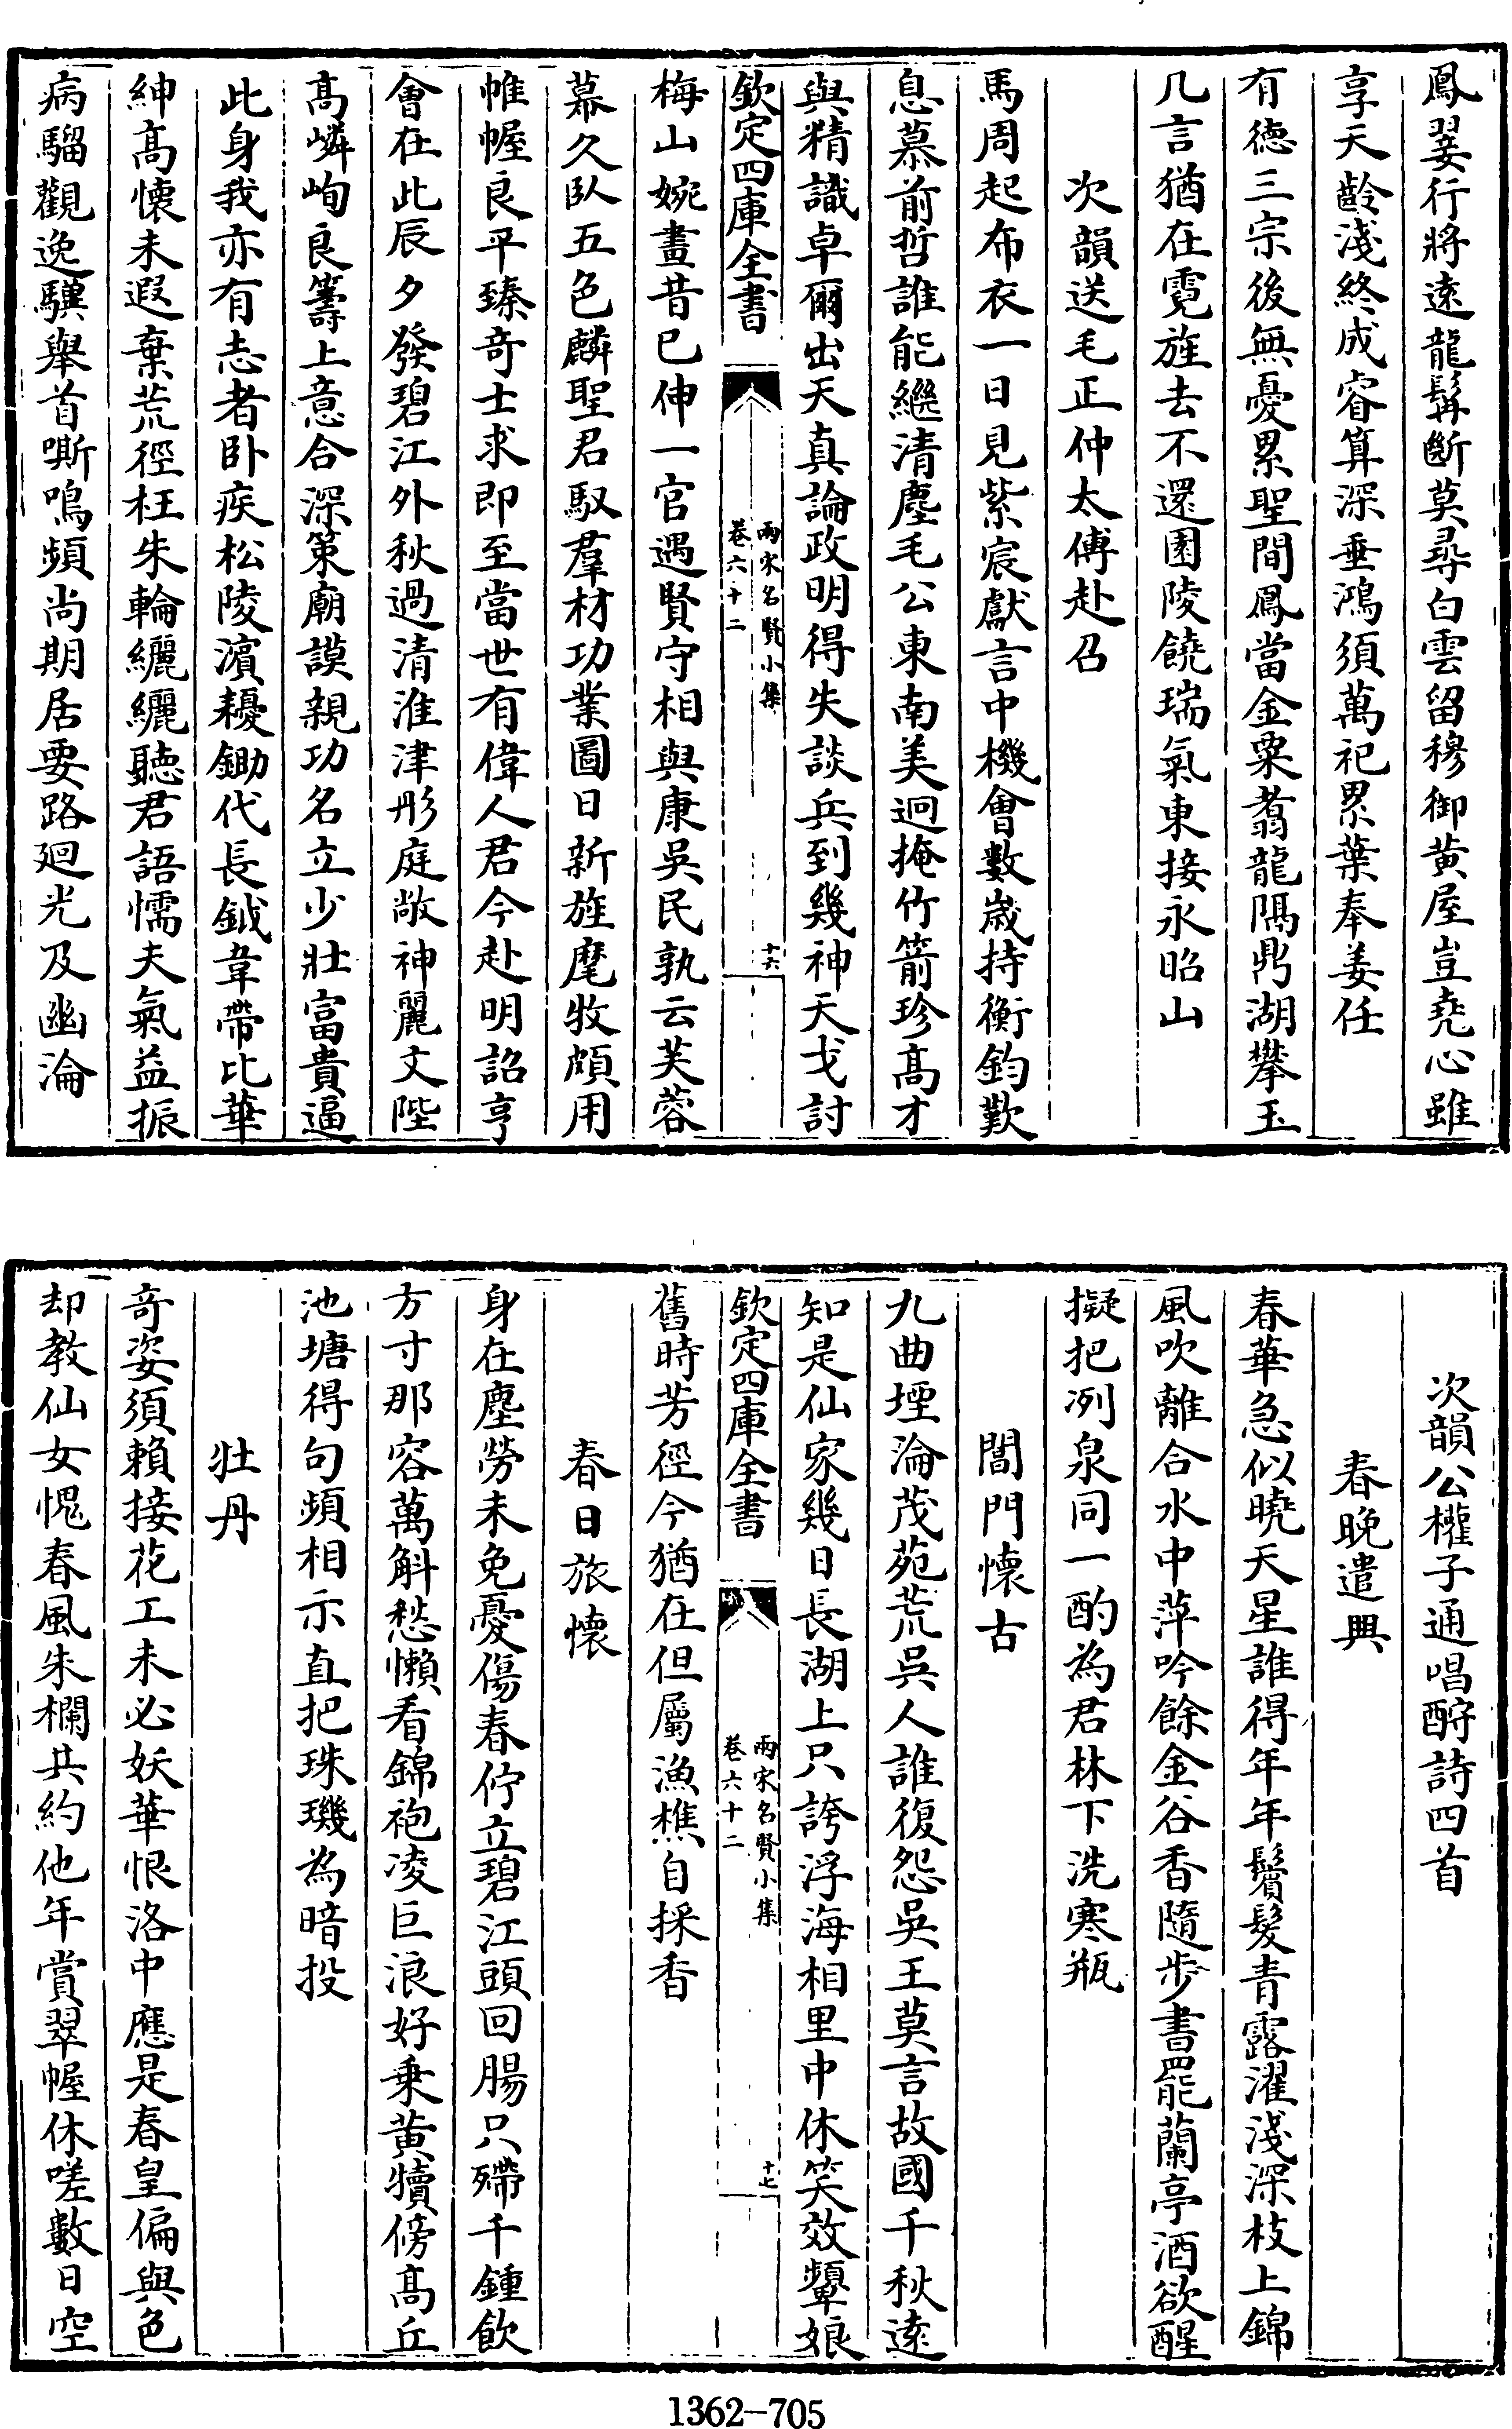 鳳翣行將遠龍髯斷莫尋白雲留穆御黃屋豈堯心雖
享天齡淺終成睿算深垂鴻須萬祀累葉奉姜任
有徳三宗後無憂累聖間鳳當金粟翥龍隔鼎湖攀玉
几言猶在霓旌去不還園陵饒瑞氣東接永昭山
次韻送毛正仲太傅赴召
馬周起布衣一日見紫宸獻言中機會數歲持衡鈞歎
息慕前哲誰能繼清塵毛公東南美迥掩竹箭珍高才
與精識卓爾出天真論政明得失談兵到幾神天戈討
欽定四庫全書
兩宋名賢小集
卷六十二
十六
梅山婉畫昔已伸一官遇賢守相與康吳民孰云芙蓉
幕久臥五色麟聖君馭羣材功業圖日新旌麾牧頗用
帷幄良平臻奇士求即至當世有偉人君今赴明詔亨
會在此辰夕發碧江外秋過清淮津彤庭敞神麗文陛
高嶙峋良籌上意合深策廟謨親功名立少壯富貴逼
此身我亦有志者卧疾松陵濱耰鋤代長鉞韋帶比華
紳高懷未遐棄荒徑枉朱輪纚纚聽君語懦夫氣益振
病騮觀逸驥舉首嘶鳴頻尚期居要路廻光及幽淪
次韻公權子通唱酧詩四首
春晚遣興
春華急似曉天星誰得年年鬢髮青露濯淺深枝上錦
風吹離合水中萍吟餘金谷香隨步書罷蘭亭酒欲醒
擬把冽泉同一酌為君林下洗寒瓶
閶門懷古
九曲堙淪茂苑荒吳人誰復怨吳王莫言故國千秋遠
知是仙家幾日長湖上只誇浮海相里中休笑效顰娘
欽定四庫全書
兩宋名賢小集
卷六十二
十七
舊時芳徑今猶在但屬漁樵自採香
春日旅懷
身在塵勞未免憂傷春佇立碧江頭回腸只殢千鍾飲
方寸那容萬斛愁懶看錦袍凌巨浪好乗黃犢傍高丘
池塘得句頻相示直把珠璣為暗投
牡丹
奇姿須賴接花工未必妖華恨洛中應是春皇偏與色
却教仙女愧春風朱欄共約他年賞翠幄休嗟數日空
1362-705